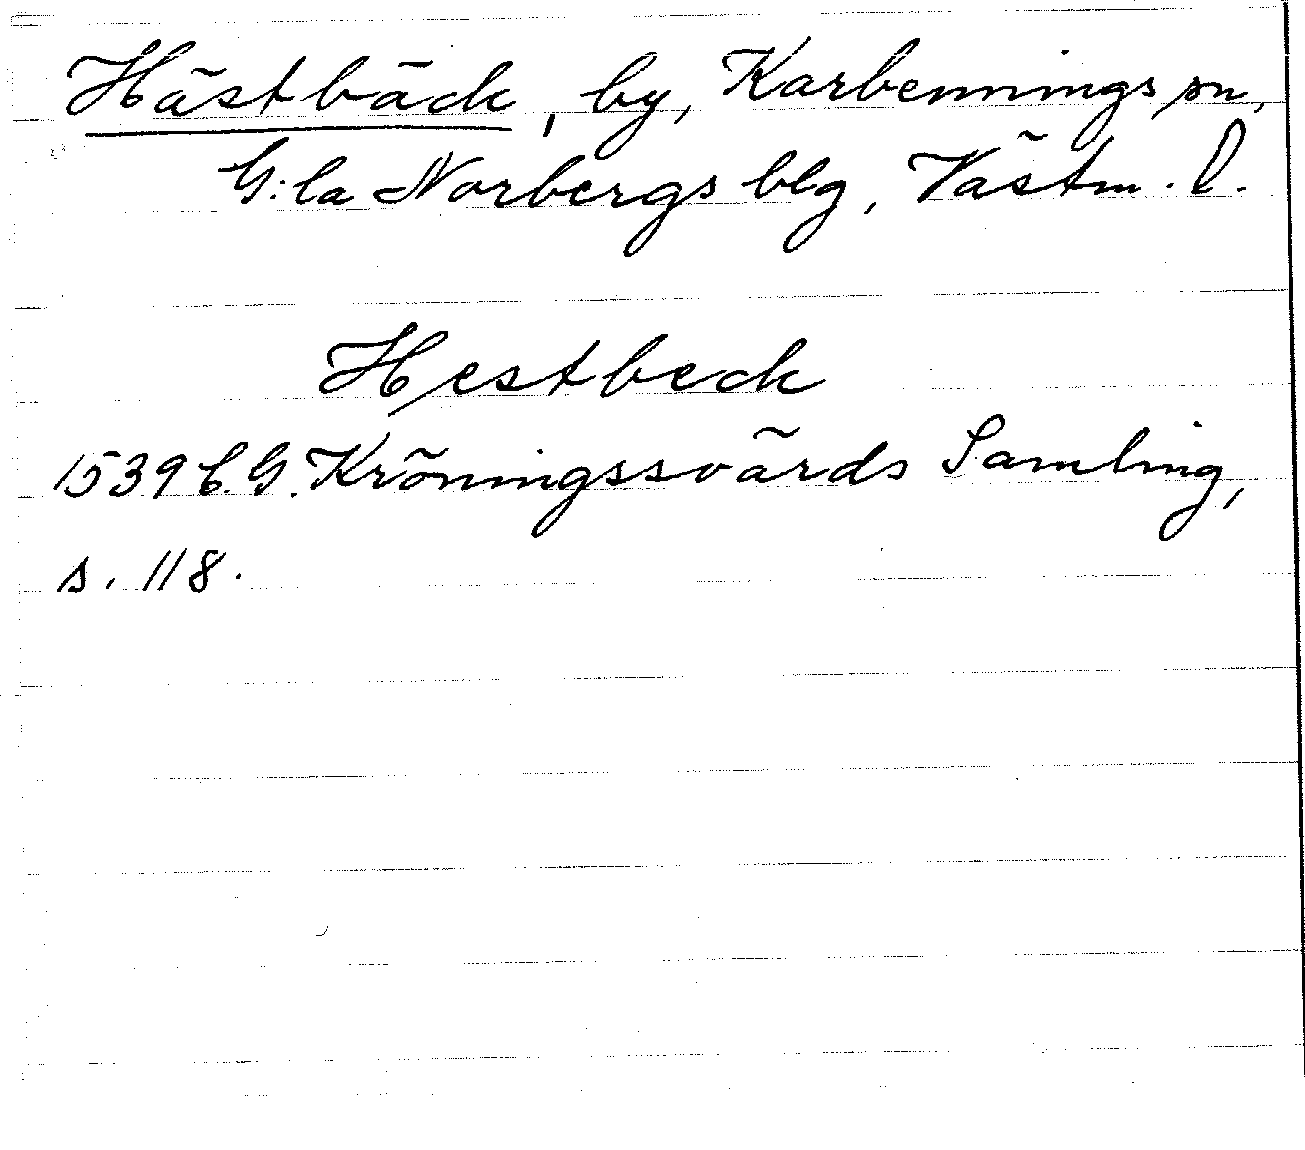 Hästbäck, by, Karbennings sn,
G:la Norbergs blg, Västm. l.
Hestbeck
1539 C.G. Kröningssvärds Samling,
s. 118.